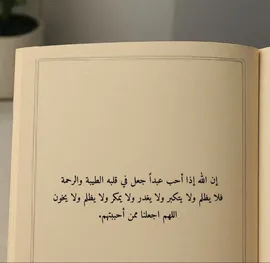 إن الله إذا أحب عبداً جعل في قلبه الطيبة والرحمة
فلا يظلم ولا يتكبر ولا يغدر ولا يمكر ولا يظلم ولا يخون
اللهم اجعلنا ممن أحببتهم.